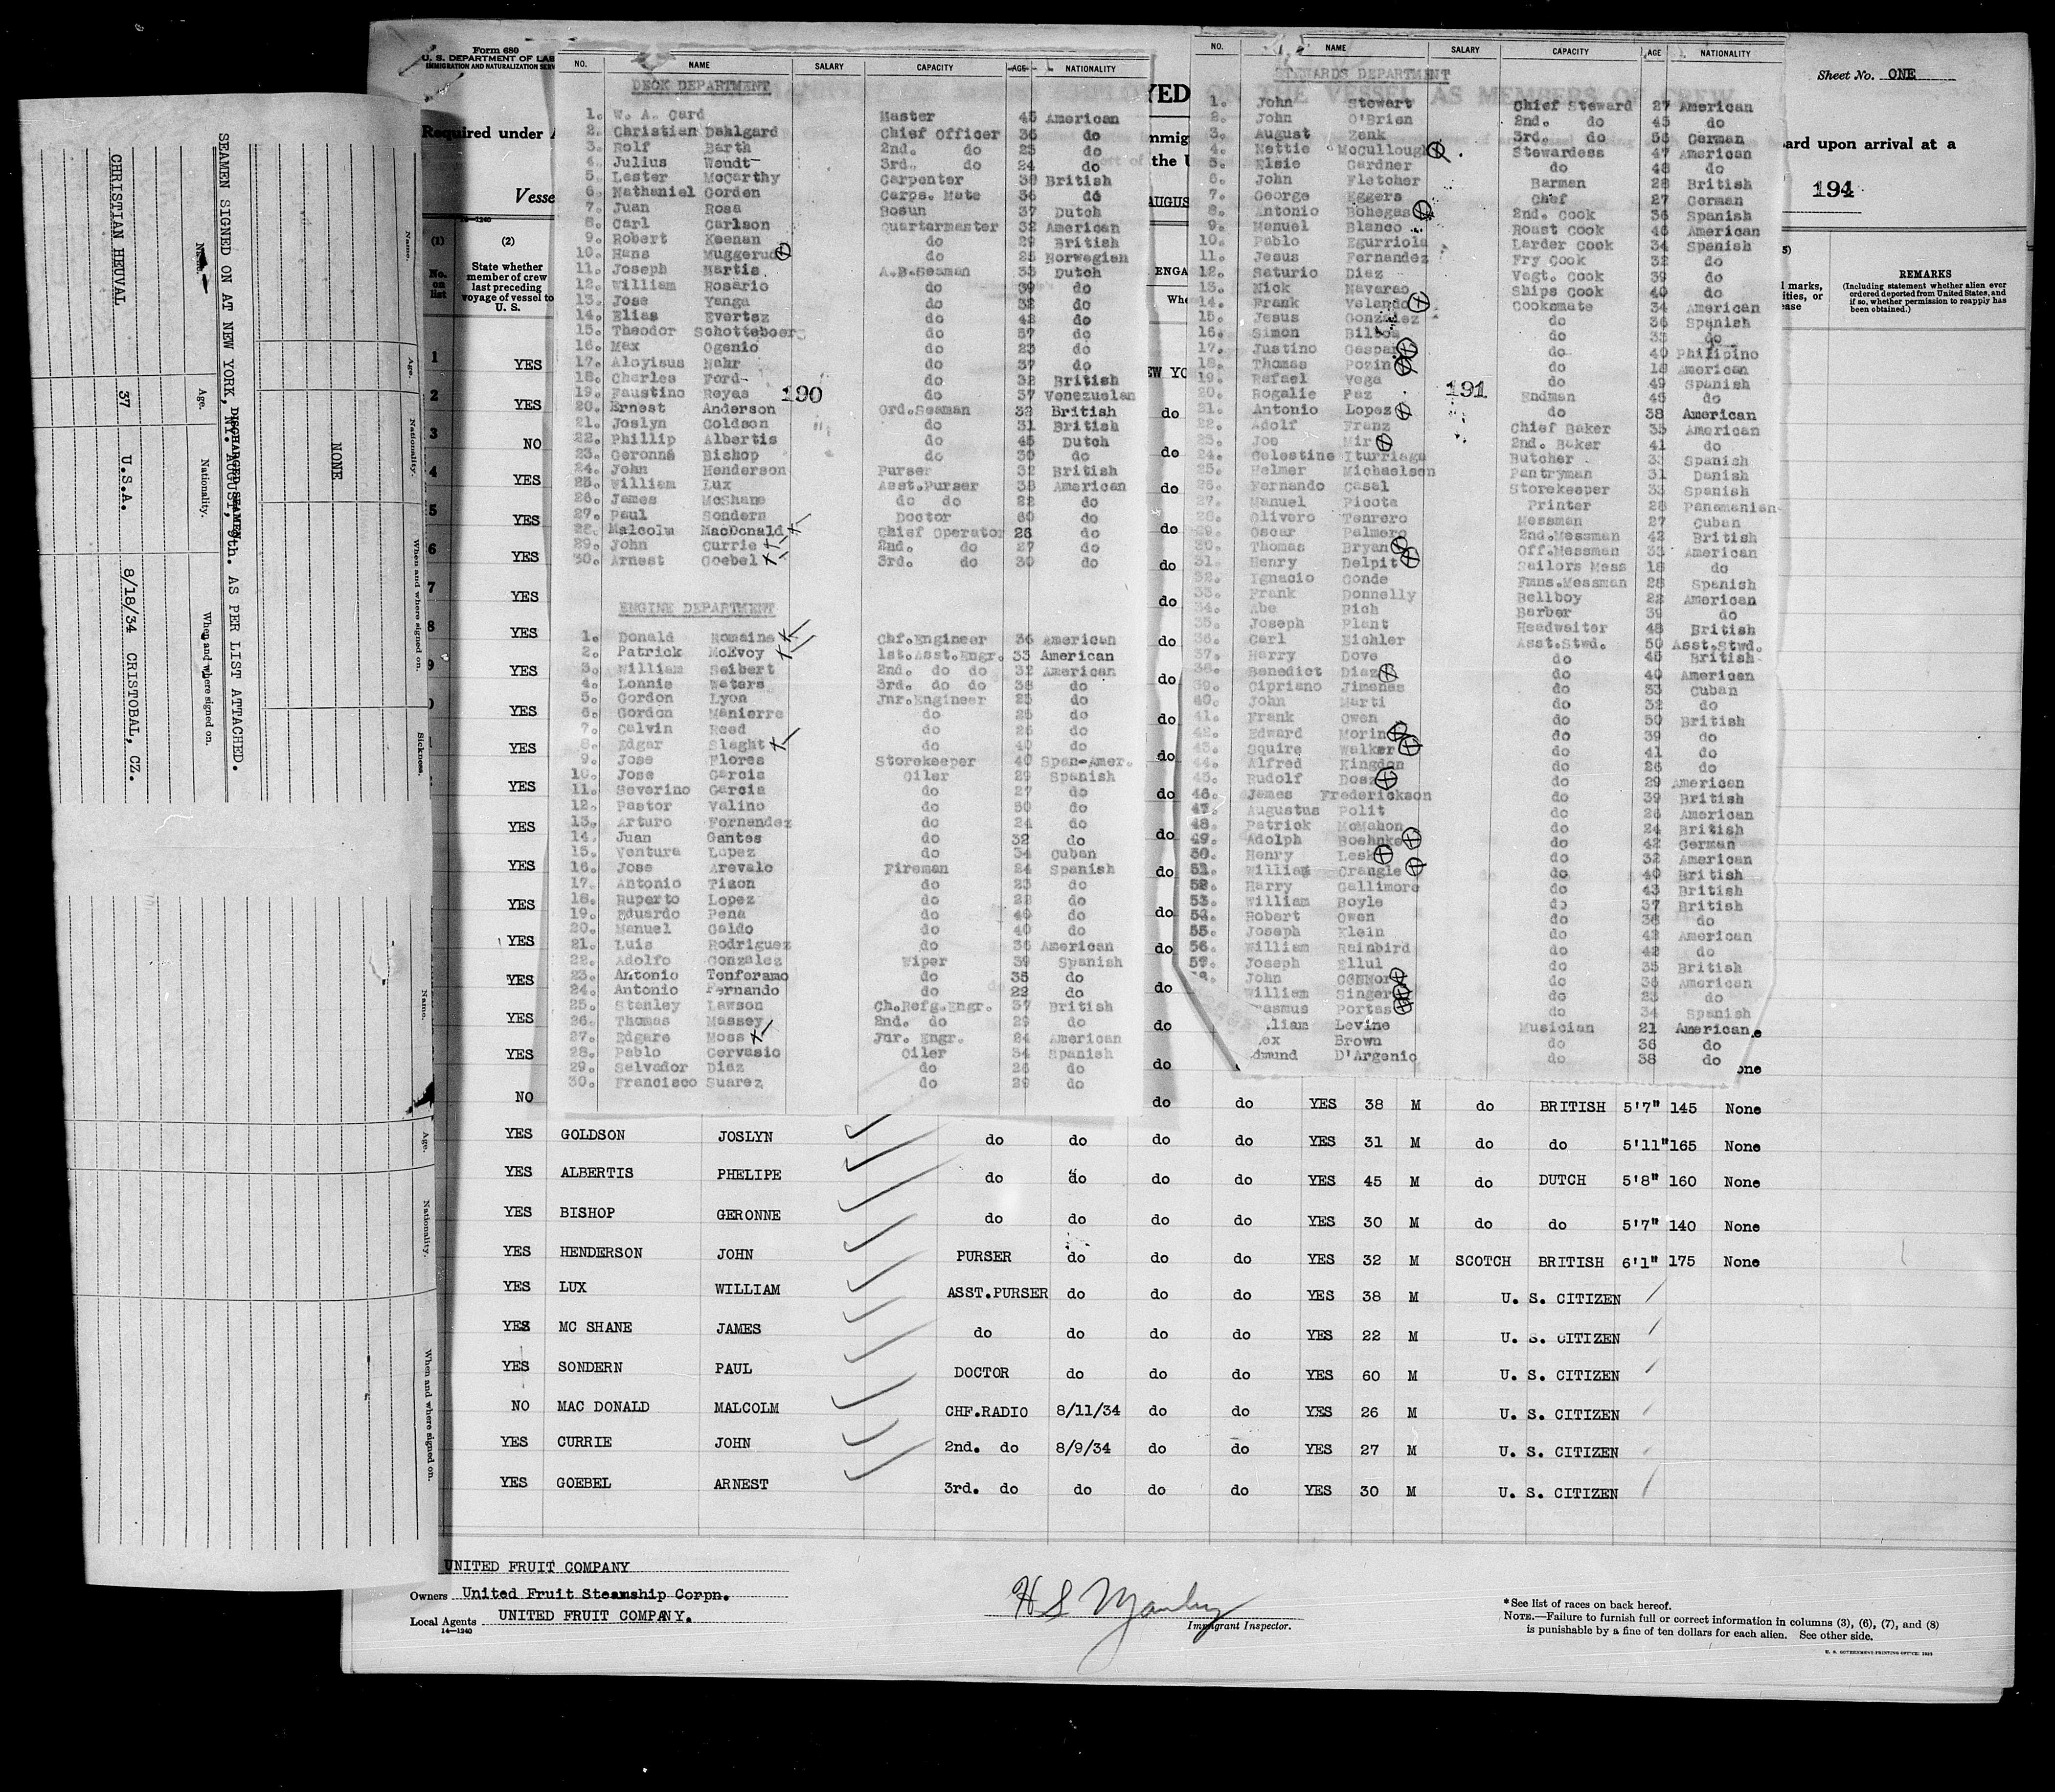 Form 680
U. S. DEPARTMENT OF LAB
IMMIGRATION AND NATURALIZATION SERV
Required under A
Vesse
14-1240
(1) (2)
No. on list
State whether member of crew last preceding voyage of vessel to U. S.
Sheet No. ONE
ard upon arrival at a
194
REMARKS
(Including statement whether alien ever ordered deported from United States, and if so, whether permission to reapply has been obtained.)
SEAMEN SIGNED ON AT NEW YORK, NY. AUGUST, 9th. AS PER LIST ATTACHED.
DISCHARGED SEAMEN
Name. Age. Nationality. When and where signed on.
CHRISTIAN HEUVAL 37 U.S.A. 8/18/34 CRISTOBAL, CZ.
Name. Age. Nationality. When and where signed on. Sickness.
NONE
Name. Age. Nationality. When and where signed on.
NO. NAME SALARY CAPACITY AGE NATIONALITY
DECK DEPARTMENT
1. W. A. Card Master 45 American
2. Christian Dahlgard Chief Officer 36 do
3. Rolf Barth 2nd. do 25 do
4. Julius Wendt 3rd. do 24 do
5. Lester McCarthy Carpenter 38 British
6. Nathaniel Gorden Carps. Mate 36 do
7. Juan Rosa Bosun 37 Dutch
8. Carl Carlson Quartermaster 32 American
9. Robert Keenan do 29 British
10. Hans Muggerud do 25 Norwegian
11. Joseph Martis A.B.Seaman 33 Dutch
12. William Rosario do 39 do
13. Jose Yanga do 32 do
14. Elias Evertsz do 42 do
15. Theodor Schotteboer do 57 do
16. Max Ogenio do 23 do
17. Aloyisus Nahr do 37 do
18. Charles Ford do 32 British
19. Faustino Reyes do 37 Venezuelan
190
20. Ernest Anderson Ord.Seaman 32 British
21. Joslyn Goldson do 31 British
22. Phillip Albertis do 45 Dutch
23. Geronne Bishop do 30 do
24. John Henderson Purser 32 British
25. William Lux Asst.Purser 38 American
26. James McShane do do 22 do
27. Paul Sondern Doctor 60 do
28. Malcolm MacDonald Chief Operator 26 do
29. John Currie 2nd. do 27 do
30. Arnest Goebel 3rd. do 30 do
ENGINE DEPARTMENT
1. Donald Romaine Chf.Engineer 36 American
2. Patrick McEvoy 1st.Asst.Engr. 33 American
3. William Seibert 2nd. do do 32 American
4. Lonnie Waters 3rd. do do 38 do
5. Gordon Lyon Jnr.Engineer 25 do
6. Gordon Manierre do 25 do
7. Calvin Reed do 26 do
8. Edgar Slaght do 40 do
9. Jose Flores Storekeeper 40 Span-Amer.
10. Jose Garcia Oiler 29 Spanish
11. Severino Garcia do 27 do
12. Pastor Valino do 50 do
13. Arturo Fernandez do 24 do
14. Juan Gantes do 32 do
15. Ventura Lopez do 34 Cuban
16. Jose Arevalo Fireman 24 Spanish
17. Antonio Pizon do 23 do
18. Ruperto Lopez do 22 do
19. Eduardo Pena do 40 do
20. Manuel Galdo do 40 do
21. Luis Rodriguez do 36 American
22. Adolfo Gonzalez Wiper 39 Spanish
23. Antonio Tenforamo do 35 do
24. Antonio Fernando do 22 do
25. Stanley Lawson Ch.Refg.Engr. 37 British
26. Thomas Massey 2nd. do 29 do
27. Edgare Moss Jnr. Engr. 24 American
28. Pablo Gervasio Oiler 34 Spanish
29. Salvador Diaz do 26 do
30. Francisco Suarez do 29 do
NO. NAME SALARY CAPACITY AGE NATIONALITY
STEWARDS DEPARTMENT
1. John Stewart Chief Steward 27 American
2. John O'Brien 2nd. do 45 do
3. August Zenk 3rd. do 56 German
4. Nettie McCullough Stewardess 47 American
5. Elsie Gardner do 48 do
6. John Fletcher Barman 28 British
7. George Eggers Chef 27 German
8. Antonio Bohegas 2nd. Cook 36 Spanish
9. Manuel Blanco Roast Cook 46 American
10. Pablo Egurriola Larder Cook 34 Spanish
11. Jesus Fernandez Fry Cook 32 do
12. Saturio Diaz Vegt. Cook 39 do
13. Nick Navarao Ships Cook 40 do
14. Frank Velando Cooksmate 34 American
15. Jesus Gonzalez do 36 Spanish
16. Simon Bilboa do 35 do
17. Justino Gaspar do 40 Philipino
18. Thomas Pozin do 18 American
19. Rafael Vega do 49 Spanish
191
20. Rogalie Paz Endman 46 do
21. Antonio Lopez do 38 American
22. Adolf Franz Chief Baker 35 American
23. Joe Mir 2nd. Baker 41 do
24. Celestine Iturriaga Butcher 33 Spanish
25. Helmer Michaelsen Pantryman 31 Danish
26. Fernando Casel Storekeeper 33 Spanish
27. Manuel Picota Printer 28 Panamanian
28. Olivero Tenrero Messman 27 Cuban
29. Oscar Palmero 2nd.Messman 42 British
30. Thomas Bryan Off.Messman 33 American
31. Henry Delpit Sailors Mess 18 do
32. Ignacio Conde Fmns.Messman 28 Spanish
33. Frank Donnelly Bellboy 22 American
34. Abe Rich Barber 39 do
35. Joseph Plant Headwaiter 48 British
36. Carl Eichler Asst.Stwd. 50 Asst.Stwd.
37. Harry Dove do 45 British
38. Benedict Diaz do 40 American
39. Cipriano Jimenes do 33 Cuban
40. John Marti do 32 do
41. Frank Owen do 50 British
42. Edward Morin do 39 do
43. Squire Walker do 41 do
44. Alfred Kingdon do 26 do
45. Rudolf Dosz do 29 American
46. James Frederickson do 39 British
47. Augustus Polit do 26 American
48. Patrick McMahon do 24 British
49. Adolph Boehnke do 42 German
50. Henry Lesh do 32 American
51. William Crangle do 40 British
52. Harry Gallimore do 43 British
53. William Boyle do 37 British
54. Robert Owen do 38 do
55. Joseph Klein do 42 American
56. William Rainbird do 42 do
57. Joseph Ellul do 35 British
John CONNor do 36 American
William Singer do 23 do
asmus Portas do 34 Spanish
liam Levine Musician 21 American
ex Brown do 36 do
dmund D'Argenio do 38 do
1 YES
2 YES
3 NO
4 YES
5 YES
6 YES
7 YES
8 YES
9 YES
YES
YES
YES
YES
YES
YES
YES
YES
YES
YES
NO do do YES 38 M do BRITISH 5'7" 145 None
YES GOLDSON JOSLYN do do do do YES 31 M do do 5'11" 165 None
YES ALBERTIS PHELIPE do do do do YES 45 M do DUTCH 5'8" 160 None
YES BISHOP GERONNE do do do do YES 30 M do do 5'7" 140 None
YES HENDERSON JOHN PURSER do do do YES 32 M SCOTCH BRITISH 6'1" 175 None
YES LUX WILLIAM ASST.PURSER do do do YES 38 M U. S. CITIZEN
YES MC SHANE JAMES do do do do YES 22 M U. S. CITIZEN
YES SONDERN PAUL DOCTOR do do do YES 60 M U. S. CITIZEN
NO MAC DONALD MALCOLM CHF.RADIO 8/11/34 do do YES 26 M U. S. CITIZEN
YES CURRIE JOHN 2nd. do 8/9/34 do do YES 27 M U. S. CITIZEN
YES GOEBEL ARNEST 3rd. do do do do YES 30 M U. S. CITIZEN
UNITED FRUIT COMPANY
Owners United Fruit Steamship Corpn.
Local Agents UNITED FRUIT COMPANY.
14-1240
H S Manley
Immigrant Inspector.
*See list of races on back hereof.
NOTE.—Failure to furnish full or correct information in columns (3), (6), (7), and (8)
is punishable by a fine of ten dollars for each alien. See other side.
U. S. GOVERNMENT PRINTING OFFICE: 1933